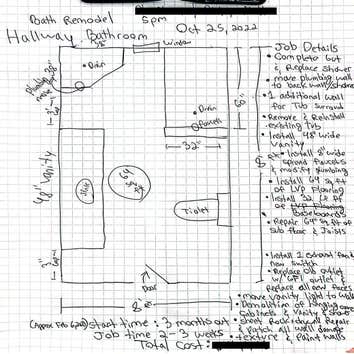 Bath Remodel 5pm
Oct 25, 2022
Hallway Bathroom
Window
Drain
Drain
Faucet
32"
60"
48" Vanity
Sink
64
Toilet
Door
8
Job Details
• Complete Gut
& Replace shower
• move plumbing wall
to back wall/shower
• 1 additional wall
for Tub surround
• Remove & Reinstall
existing Tub
• Install 48" wide
Vanity
• Install 8" wide
spread faucets
& modify plumbing
• Install 64 sq ft
of LVP Flooring
• Install 32 LF of
Baseboards
• Repair 64 sq ft of
sub floor & Joists
• Install 1 Exhaust fan &
new switch
• Replace old outlet
w/ GFI outlet &
Replace all new faces
• move vanity light to wall
• Demolition of hanging
Cabinets & Vanity
• sheet Rock
& Patch all wall damage
• texture & Paint walls
start time: 3 months out
Job time 2-3 weeks
Total Cost: